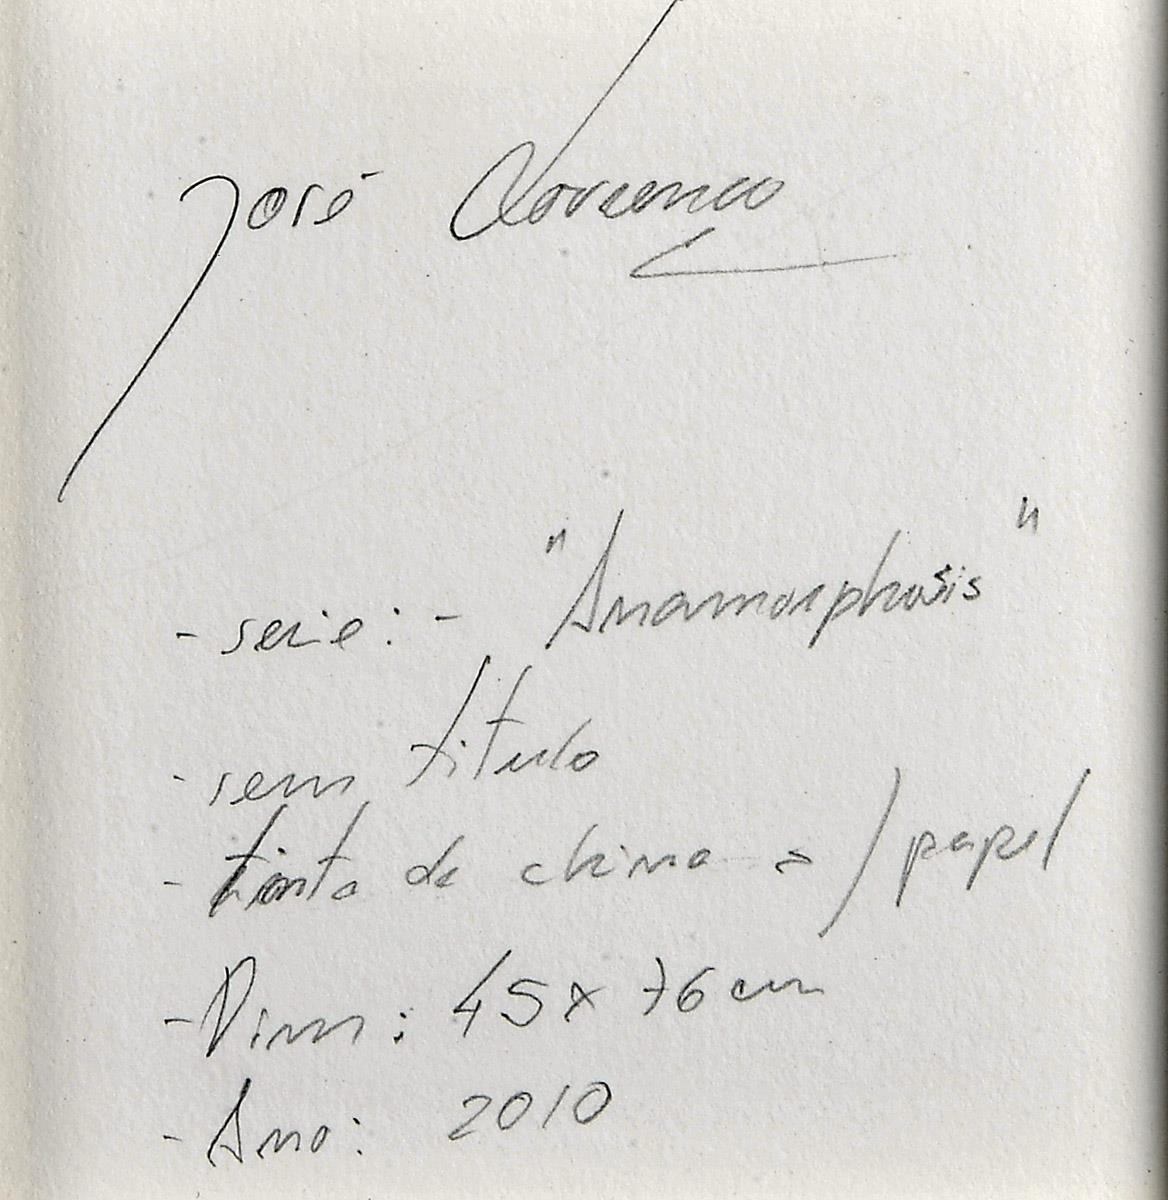 José Lourenço
- serie: - "Anamorphosis"
- sem titulo
- tinta da china s/papel
- Dim: 45x76cm
- Ano: 2010